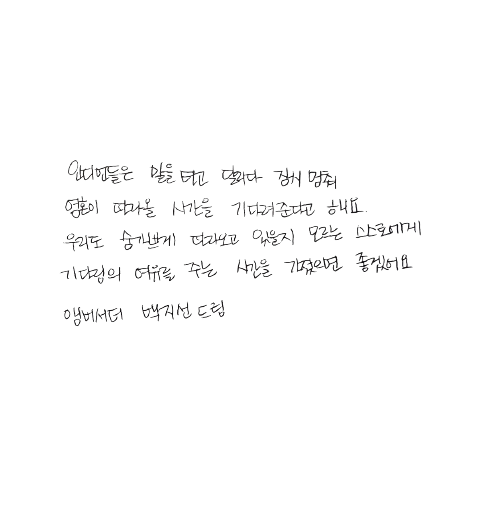 인디언들은 말을 타고 달리다 잠시 멈춰
영혼이 따라올 시간을 기다려준다고 해요.
우리도 숨가쁘게 따라오고 있을지 모르는 스스로에게
기다림의 여유를 주는 시간을 가졌으면 좋겠어요
앰버서더 백지선 드림